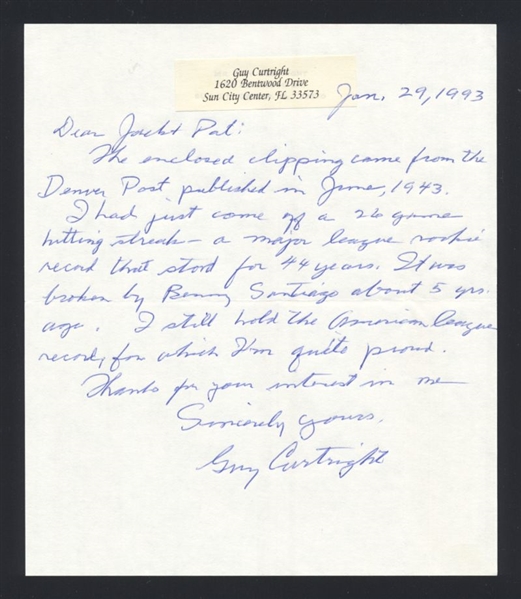 Guy Curtright
1620 Bentwood Drive
Sun City Center, FL 33573
Jan. 29, 1993
Dear Jack & Pat:
The enclosed clipping came from the
Denver Post published in June, 1943.
I had just come off a 26 game
hitting streak - a major league rookie
record that stood for 44 years. It was
broken by Benny Santiago about 5 yrs.
ago. I still hold the American league
record, for which I'm quite proud.
Thanks for your interest in me
Sincerely yours,
Guy Curtright